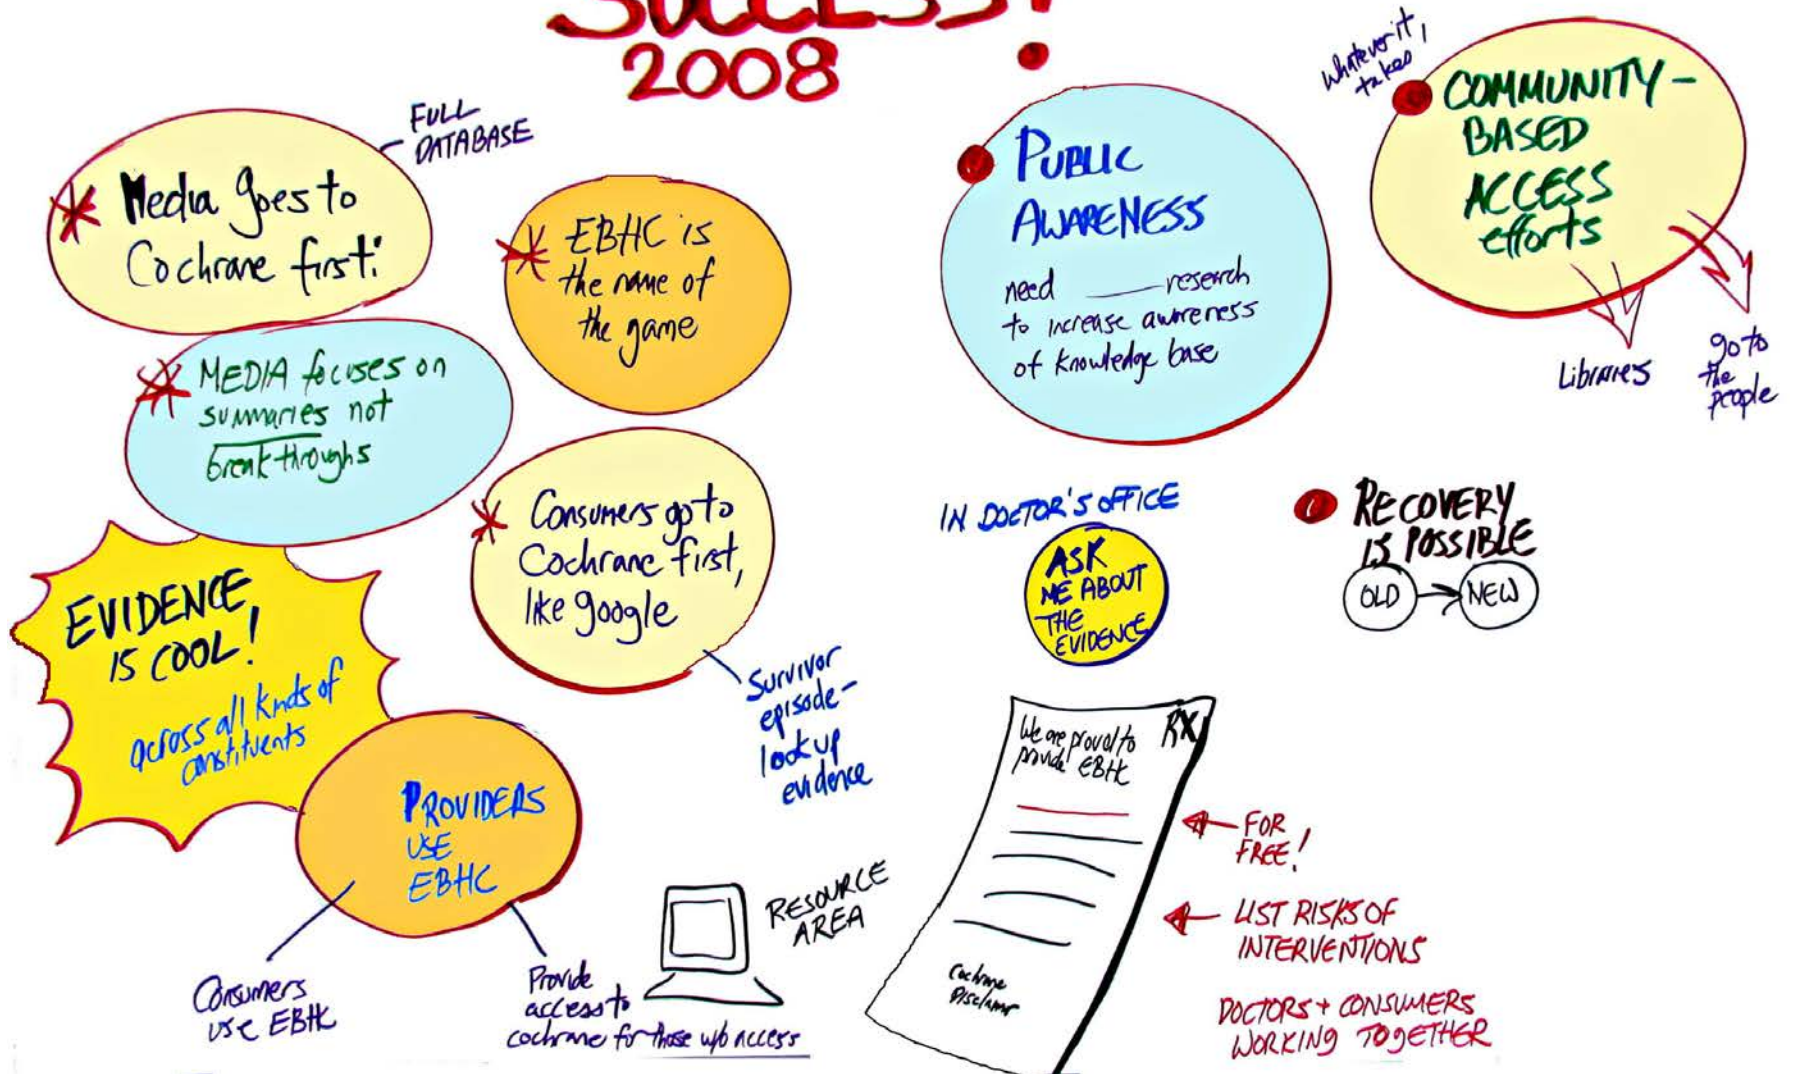 SUCCESS!
2008
FULL
DATABASE
Media goes to
Cochrane first!
EBHC is
the name of
the game
MEDIA focuses on
summaries not
breakthroughs
Consumers go to
Cochrane first,
like google
Survivor
episode-
look up
evidence
EVIDENCE
IS COOL!
across all kinds of
constituents
PROVIDERS
USE
EBHC
Consumers
use EBHC
Provide
access to
cochrane for those w/o access
RESOURCE
AREA
PUBLIC
AWARENESS
need ____ research
to increase awareness
of knowledge base
Whatever it
takes
COMMUNITY-
BASED
ACCESS
efforts
Libraries
go to
the
people
IN DOCTOR'S OFFICE
ASK
ME ABOUT
THE
EVIDENCE
RECOVERY
IS POSSIBLE
OLD → NEW
RX
We are proud to
provide EBHC
Cochrane
FOR
FREE!
LIST RISKS OF
INTERVENTIONS
DOCTORS + CONSUMERS
WORKING TOGETHER